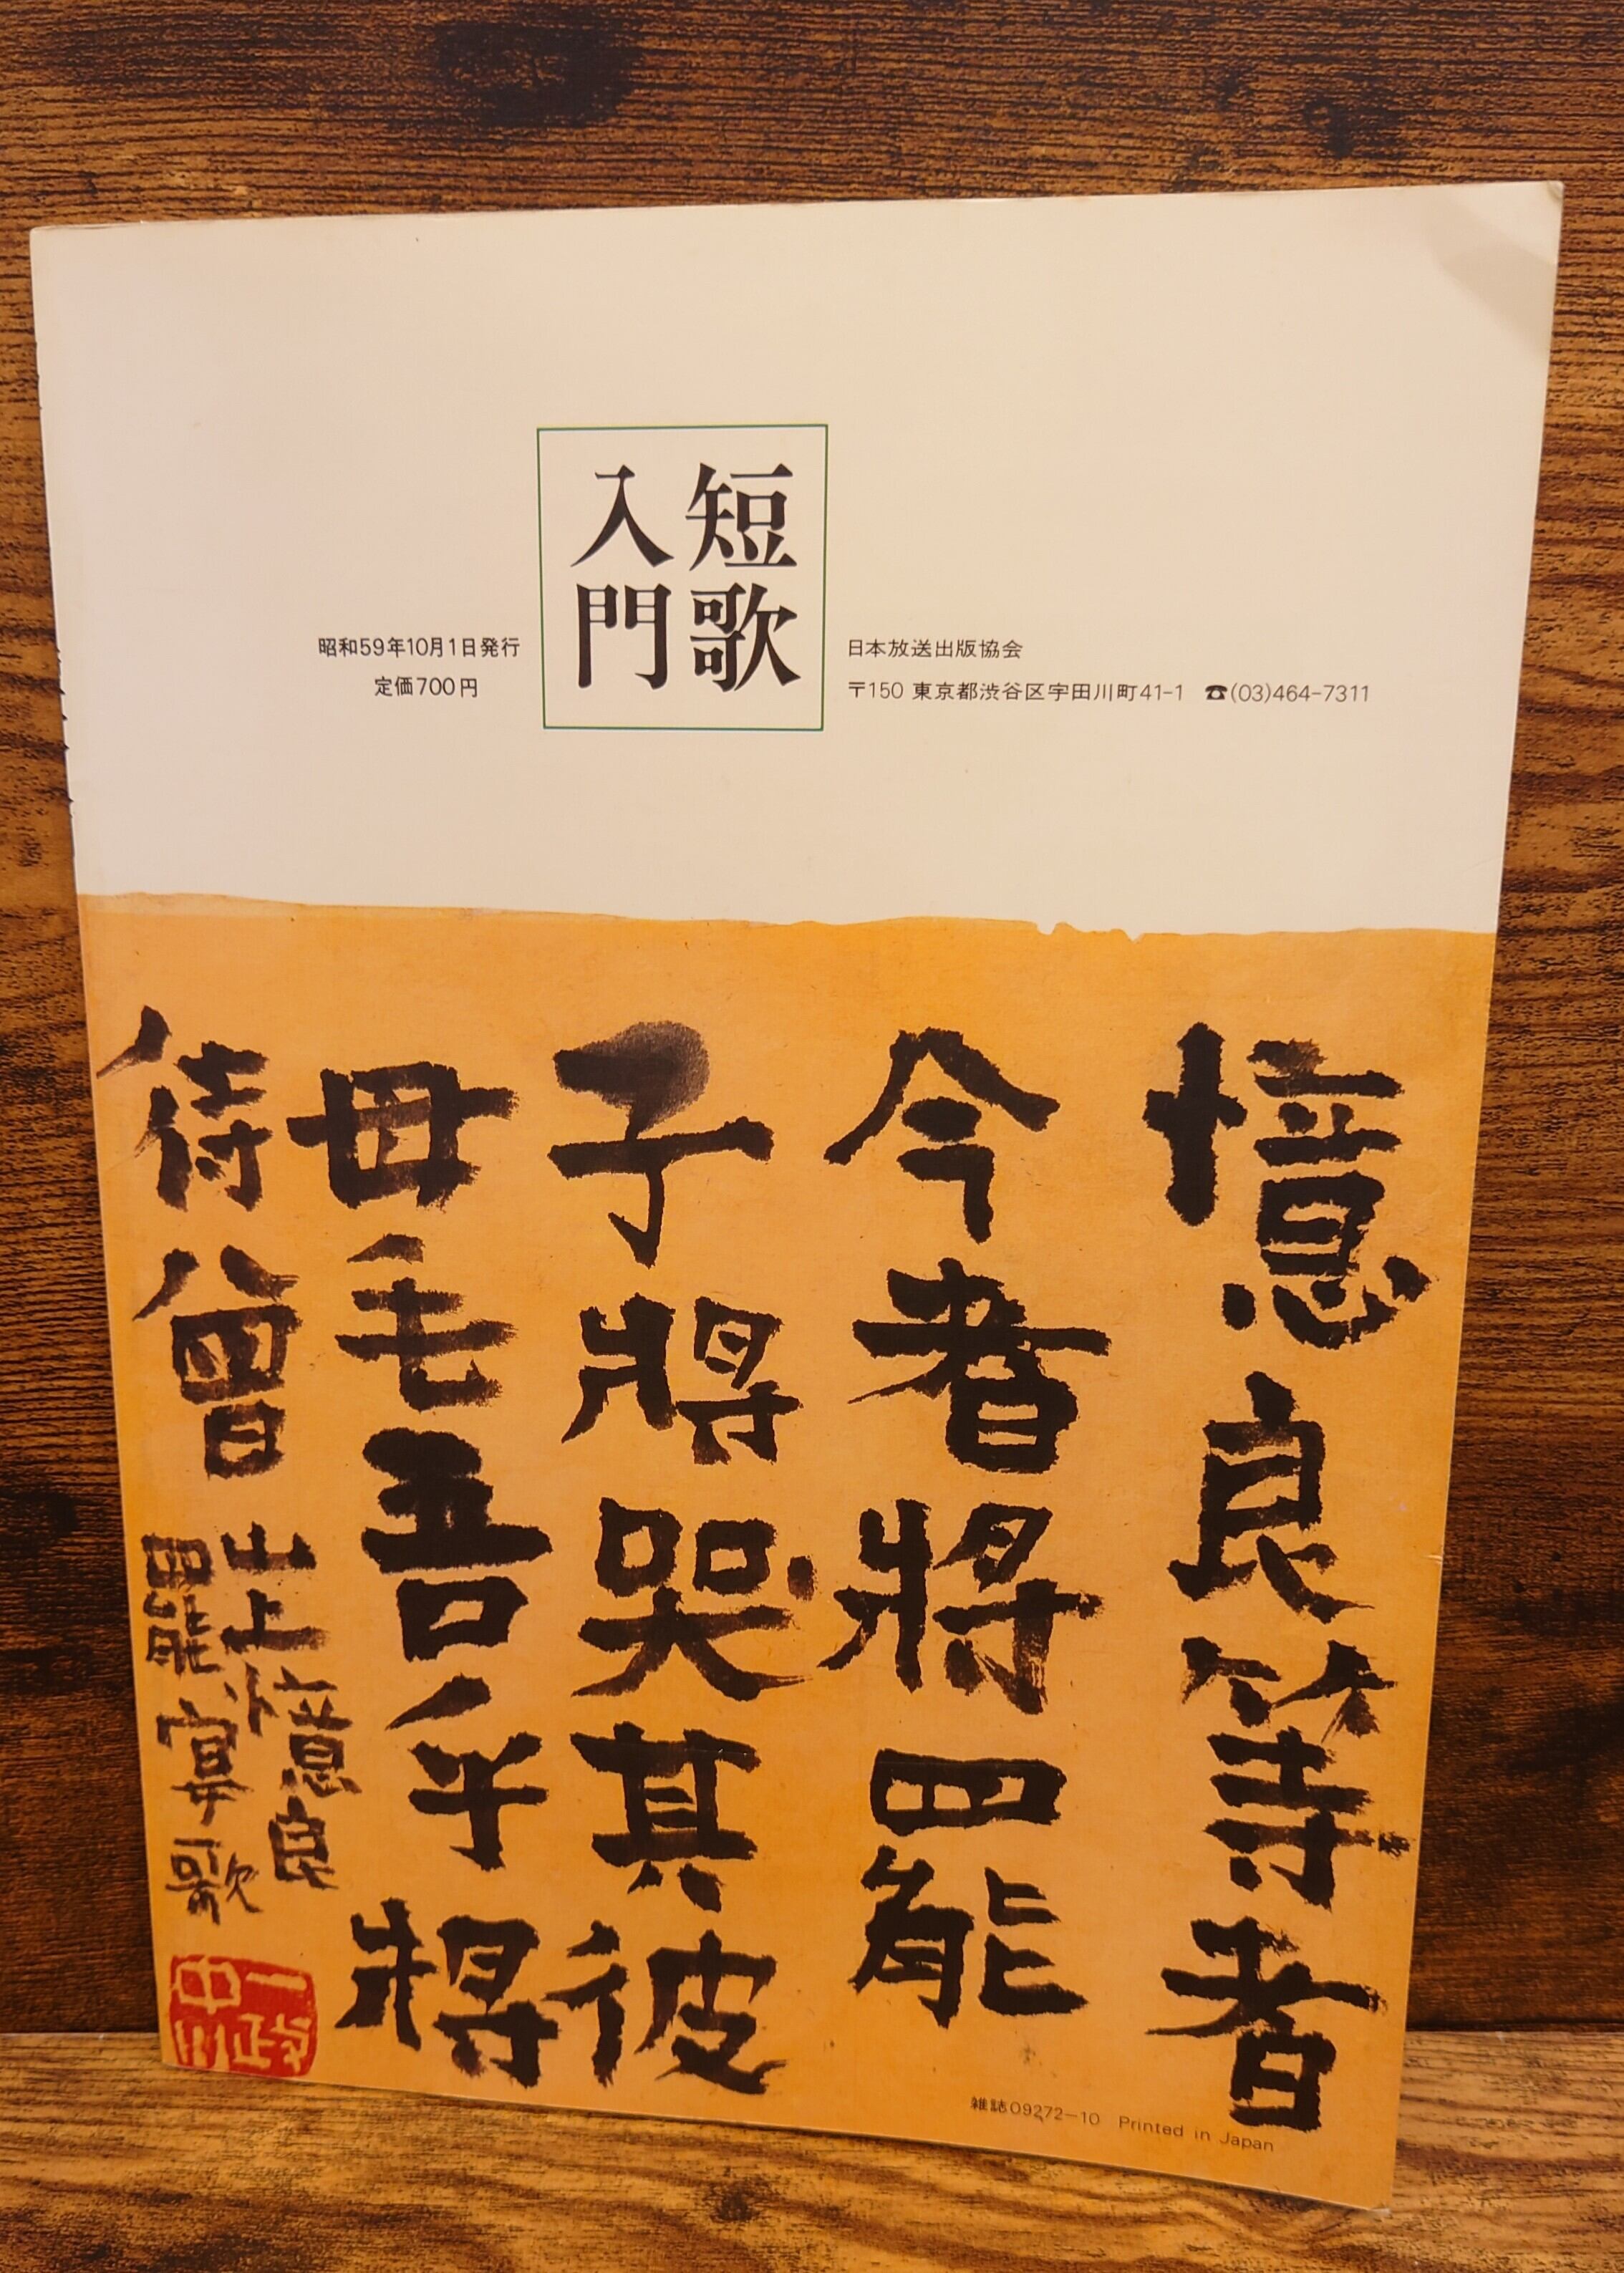 短歌
入門
昭和59年10月1日発行
定価700円
日本放送出版協会
〒150 東京都渋谷区宇田川町41-1 ☎(03)464-7311
憶良等者
今者將罷
子將哭其彼
母毛吾乎將
待曾
山上憶良
罷宴歌
一政
中川
雑誌09272-10 Printed in Japan